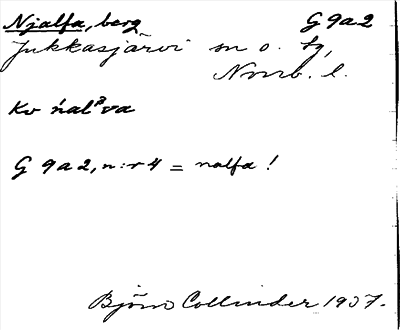 Njalfa, berg G 9a2
Jukkasjärvi sn o. tg,
Norrb. l.
Kv ńalᵊva
G 9a2, n:r 4 = nalfa !
Björn Collinder 1937.